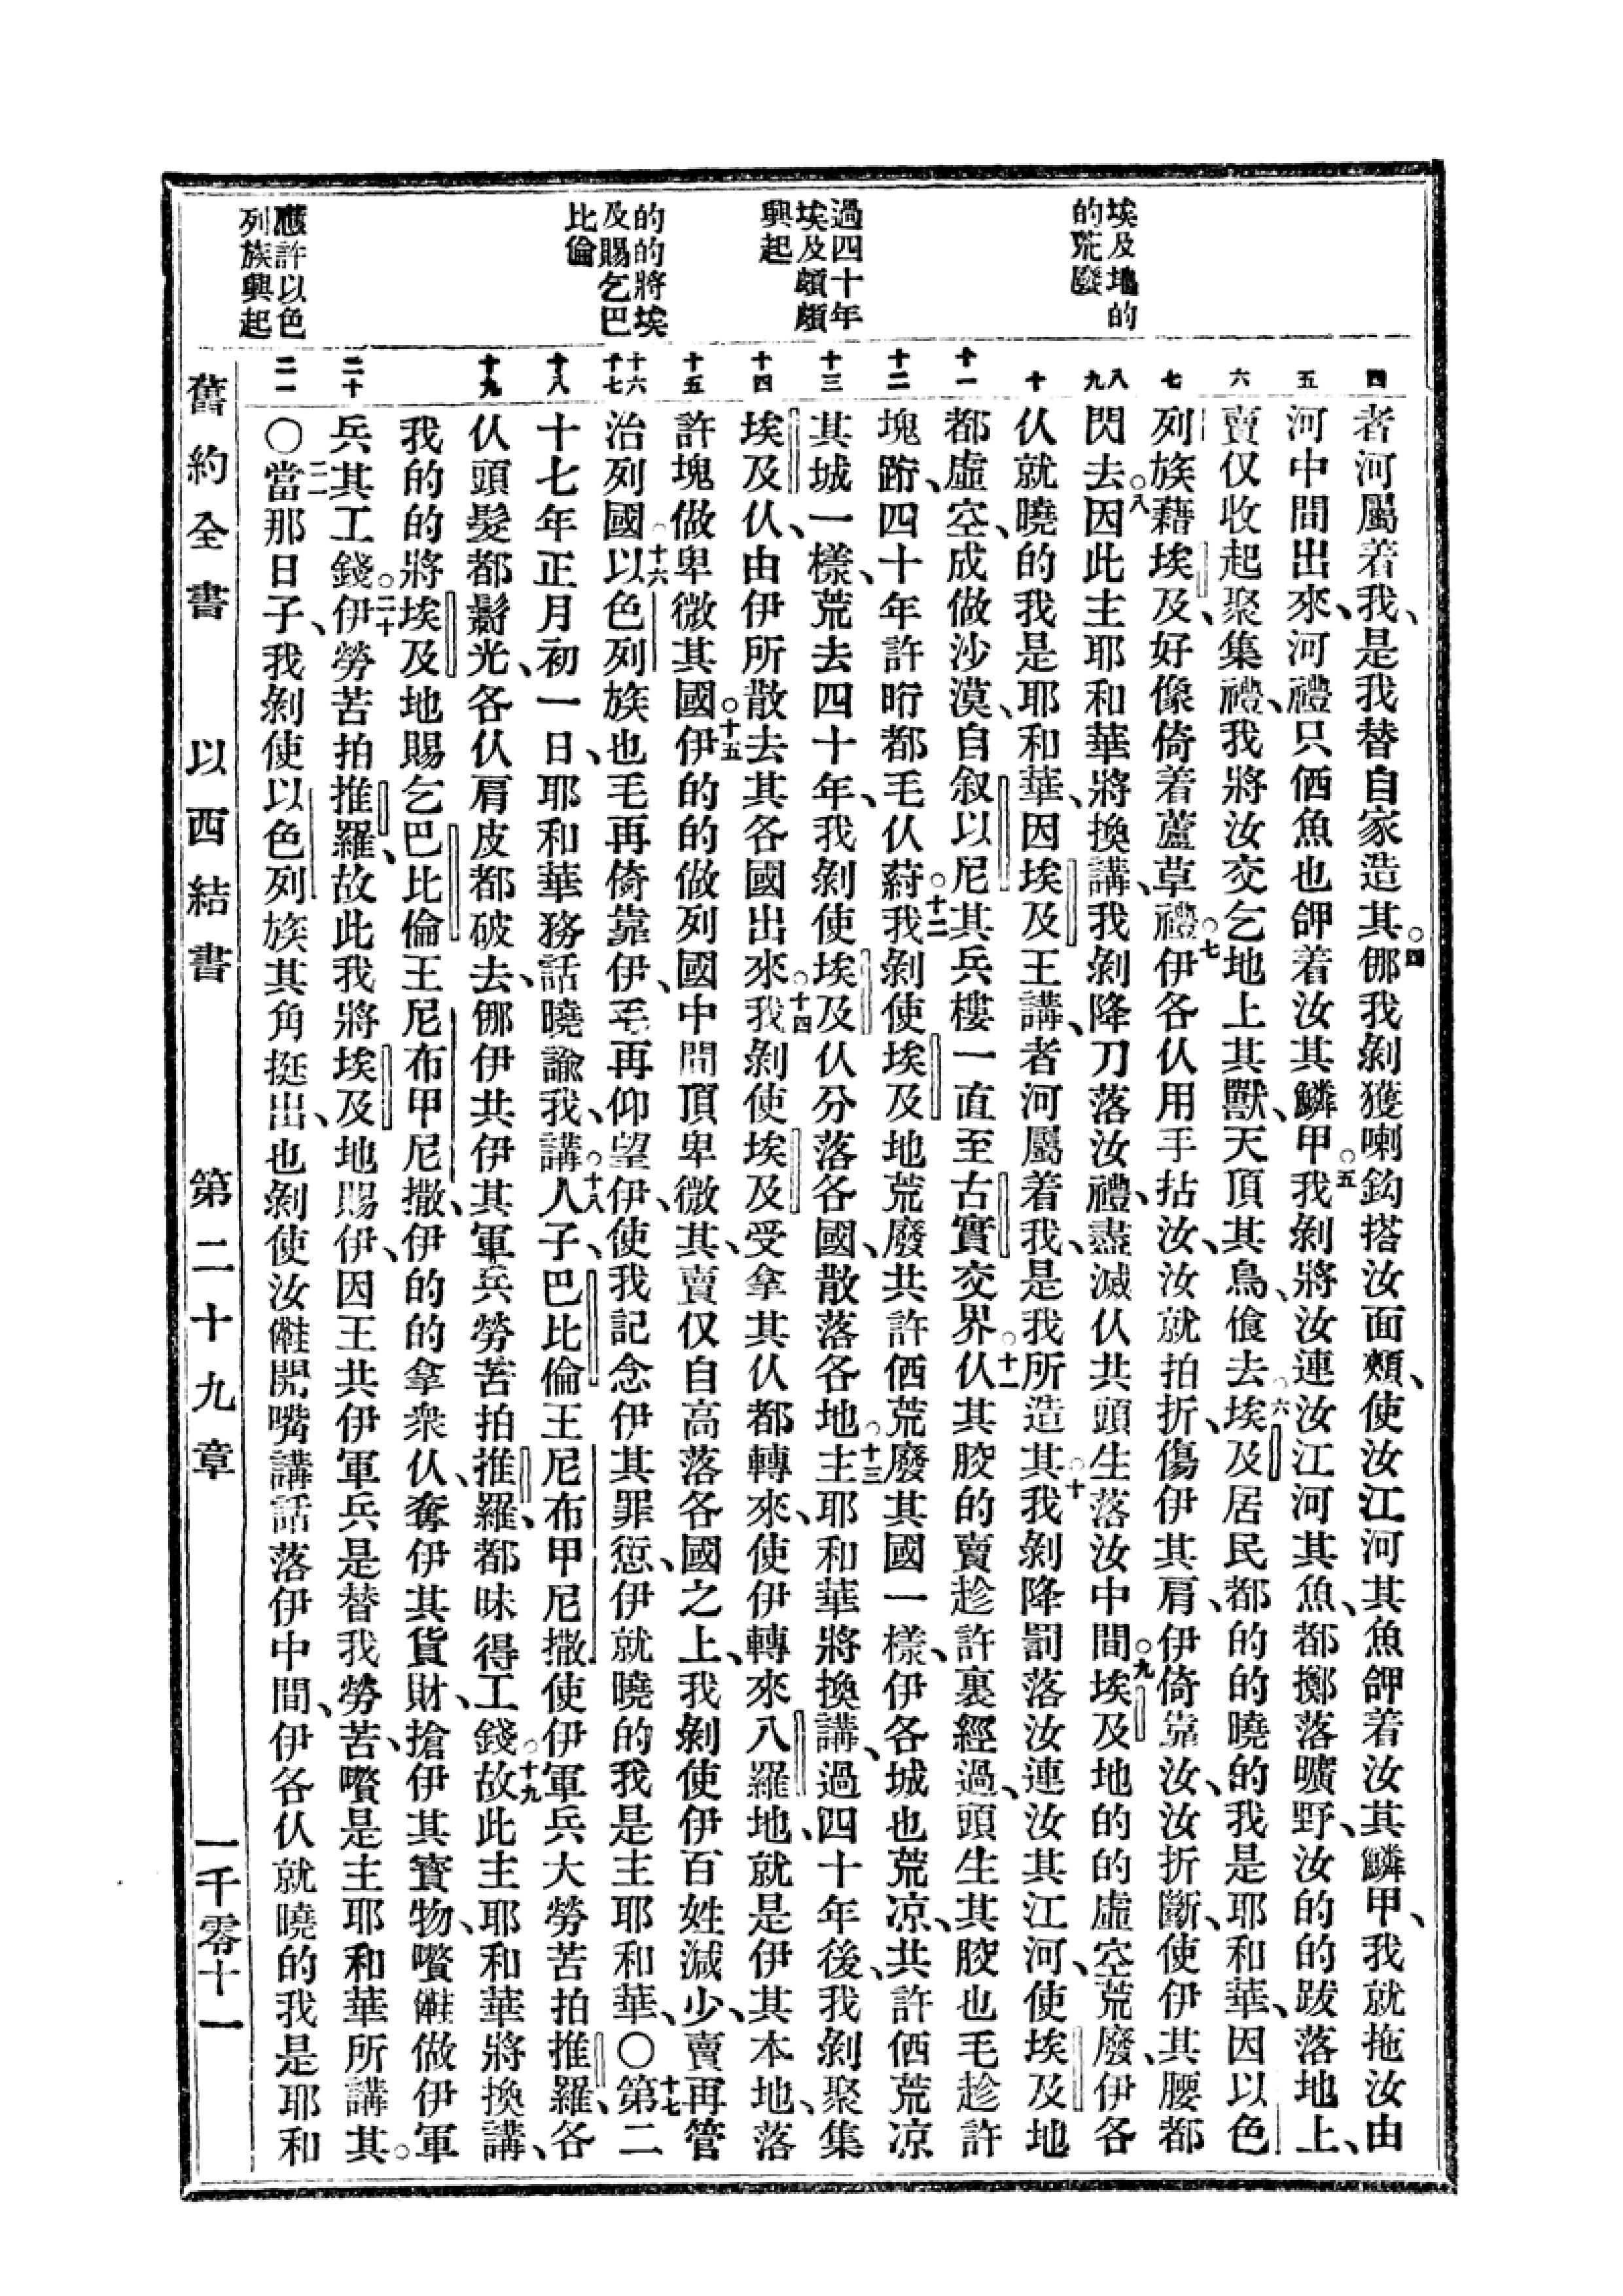 埃及地的
的荒廢
過四十年
埃及頗頗
興起
的的將埃
及賜乞巴
比倫
應許以色
列族興起
四
五
六
七
八
九
十
十一
十二
十三
十四
十五
十六
十七
十八
十九
二十
二一
者河屬着我、是我替自家造其○四㑚我剝獲喇鈎搭汝面頰、使汝江河其魚𨦇着汝其鱗甲、我就拖汝由
河中間出來、河禮只㑚魚也𨦇着汝其鱗甲○五我剝將汝連汝江河其魚、都擲落曠野、汝的的跋落地上、
賣仅收起聚集禮、我將汝交乞地上其獸、天頂其鳥、飡去○六埃及居民都的的曉的我是耶和華、因以色
列族藉埃及、好像倚着蘆草禮○七伊各仈用手拈汝、汝就拍折、傷伊其肩、伊倚靠汝、汝折斷、使伊其腰都
閃去○八因此主耶和華將換講、我剝降刀落汝禮、盡滅仈共頭生落汝中間○九埃及地的的虛空荒廢、伊各
仈就曉的我是耶和華、因埃及王講、者河屬着我、是我所造其○十我剝降罰落汝連汝其江河、使埃及地
都虛空、成做沙漠、自叙以尼其兵樓一直至古實交界○十一仈其骹的賣趁許裏經過、頭生其骹也毛趁許
塊跨、四十年許昈都毛仈䔟○十二我剝使埃及地荒廢共許㑚荒廢其國一樣、伊各城也荒凉、共許㑚荒凉
其城一樣、荒去四十年、我剝使埃及仈分落各國、散落各地○十三主耶和華將換講、過四十年後、我剝聚集
埃及仈、由伊所散去其各國出來○十四我剝使埃及受拿其仈都轉來、使伊轉來八羅地、就是伊其本地、落
許塊做卑微其國○十五伊的的做列國中間頂卑微其、賣仅自高落各國之上、我剝使伊百姓減少、賣再管
治列國○十六以色列族也毛再倚靠伊、毛再仰望伊、使我記念伊其罪愆、伊就曉的我是主耶和華、○十七第二
十七年正月初一日、耶和華務話曉諭我、講○十八人子、巴比倫王尼布甲尼撒使伊軍兵大勞苦拍推羅、各
仈頭髮都鬎光、各仈肩皮都破去、㑚伊共伊其軍兵勞苦拍推羅、都昧得工錢○十九故此主耶和華將換講、
我的的將埃及地賜乞巴比倫王尼布甲尼撒、伊的的拿衆仈、奪伊其貨財、搶伊其寳物、嚽做伊軍
兵其工錢○二十伊勞苦拍推羅、故此我將埃及地賜伊、因王共伊軍兵是替我勞苦、嚽是主耶和華所講其○
○二一當那日子、我剝使以色列族其角挺出、也剝使汝開嘴講話落伊中間、伊各仈就曉的我是耶和
舊約全書 以西結書 第二十九章 一千零十一